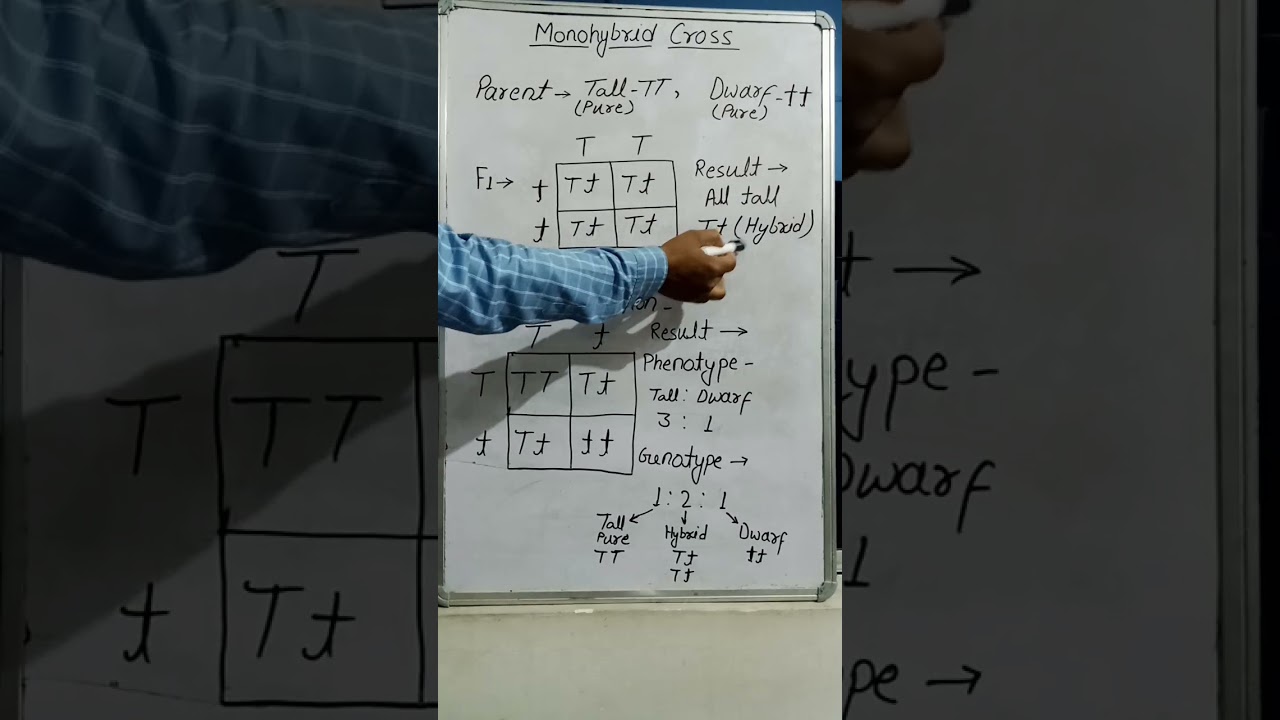 Monohybrid Cross
Parent → Tall-TT, Dwarf-tt
(Pure) (Pure)
T T
F1→ t Tt Tt
t Tt Tt
Result →
All tall
Tt (Hybrid)
T t
T TT Tt
t Tt tt
Result →
Phenotype -
Tall : Dwarf
3 : 1
Genotype →
1 : 2 : 1
Tall Hybrid Dwarf
Pure Tt tt
TT Tt